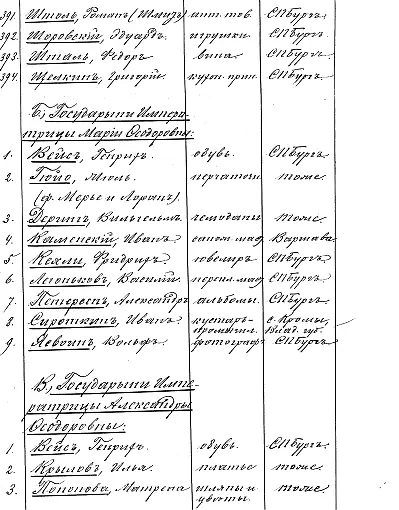 391. Штоль, Романъ (Шмузъ) апт. тов. СПбургъ.
392. Шоровскій, Эдуардъ. игрушки. СПбургъ.
393. Шталь, Ѳедоръ вина СПбургъ.
394. Щелкинъ, Григорій. кухон. прин. СПбургъ.
Б, Государыни Импера-
трицы Маріи Ѳеодоровны:
1. Вейсъ, Генрихъ. обувь. СПбургъ.
2. Гюйо, Июль. перчаточ. тоже.
(ф. Мерье и Лоранъ).
3. Дерингъ, Вильгельмъ чемоданы тоже.
4. Каменскій, Иванъ сапож. маст. Варшава.
5. Кехли, Фридрихъ ювелиръ СПбургъ.
6. Леоньковъ, Василій. перепл. маст. СПбургъ.
7. Петерсенъ, Александръ альбомы. СПбургъ.
8. Сироткинъ, Иванъ кустарь- с. Кромы,
промышл. Влад. губ.
9. Яевоинъ, Вольфъ. фотографъ СПбургъ
В, Государыни Импе-
ратрицы Александры
Ѳеодоровны:
1. Вейсъ, Генрихъ. обувь. СПбургъ.
2. Крыловъ, Илья. платье тоже.
3. Попонова, Матрена шляпы и тоже
цвѣты.